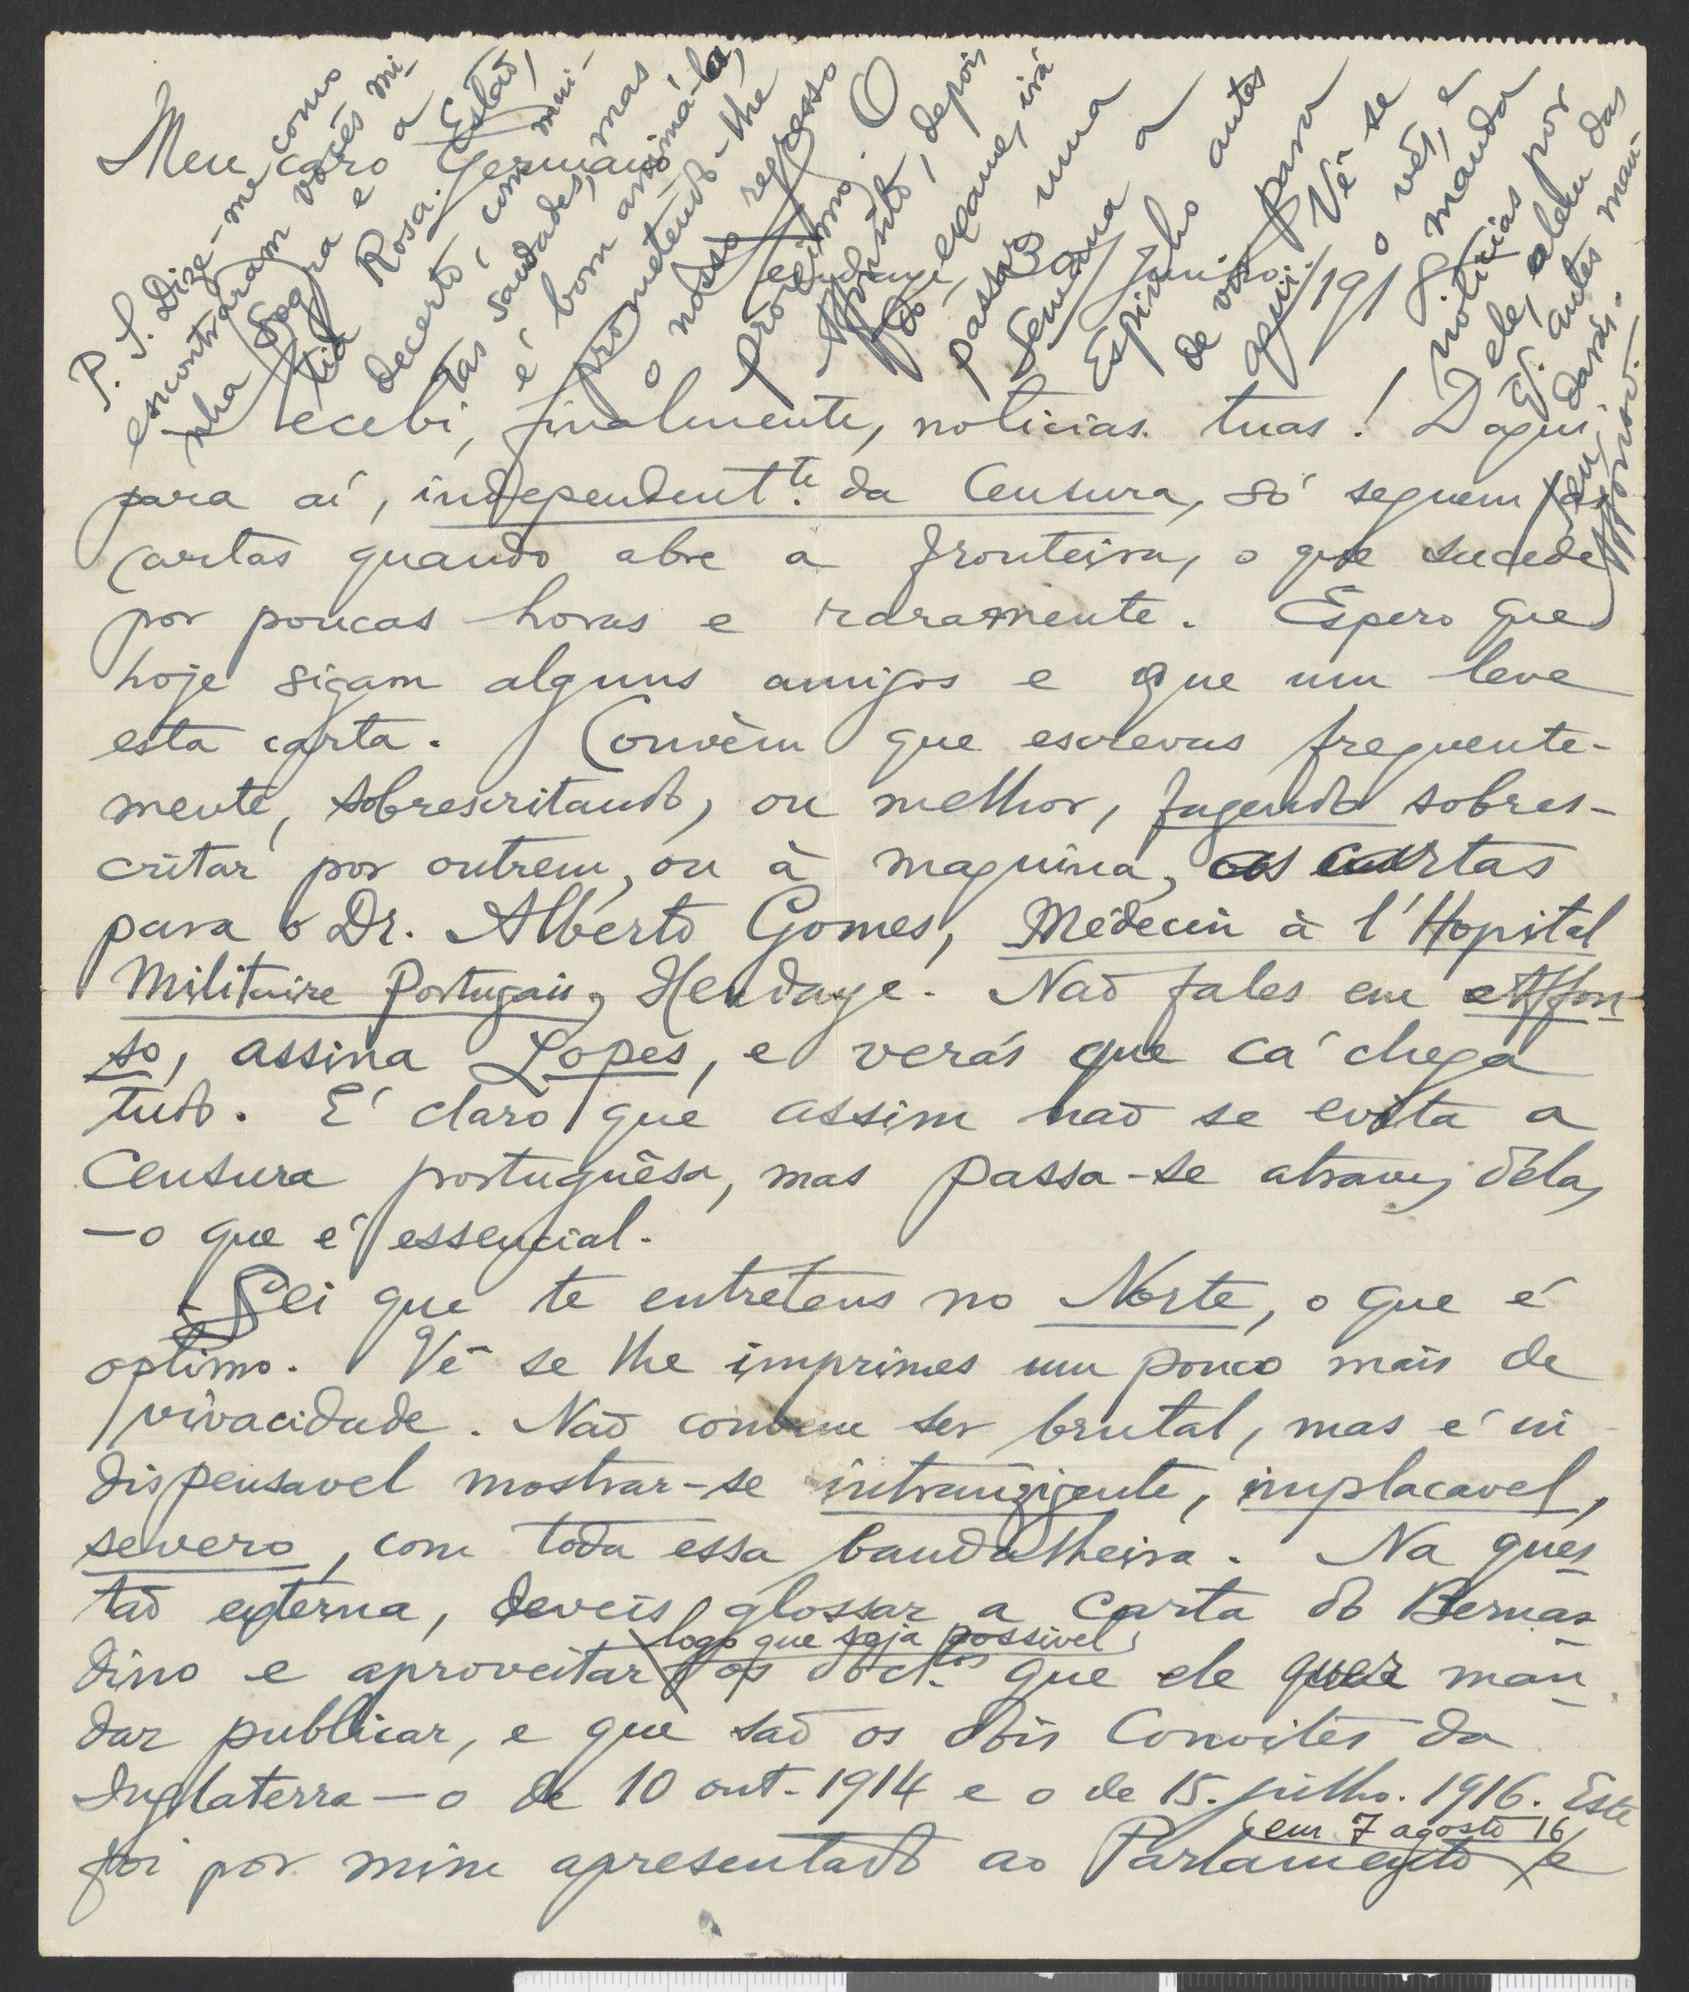 Meu caro Germano
Hendaye, 30/Junho/191
Recebi, finalmente, noticias tuas! Daqui
para aí, independentte. da Censura, só seguem as
cartas quando abre a fronteira, o que sucede
por poucas horas e raramente. Espero que
hoje sigam alguns amigos e que um leve
esta carta. Convèm que escrevas frequente-
mente, sobrescritando, ou melhor, fazendo sobres-
critar por outrem, ou à maquina, as cartas
para o Dr. Alberto Gomes, Médecin à l'Hopital
Militaire Portugais, Hendaye. Não fales em Affon-
so, assina Lopes, e verás que cá chega
tudo. É claro que assim não se evita a
Censura portuguêsa, mas passa-se atravez déla,
—o que é essencial.
- Sei que te entretens no Norte, o que é
optimo. Vê se lhe imprimes um pouco mais de
vivacidade. Não convem ser brutal, mas é in
dispensavel mostrar-se intranzigente, implacavel,
severo, com toda essa bandalheira. Na ques-
tão externa, deveis glossar a carta do Bernar
dino e aproveitar logo que seja possivel, os doctos. que ele quer man-
dar publicar, e que são os dois Convites da
Inglaterra—o de 10 out. 1914 e o de 15. julho. 1916. Este
foi por mim apresentado ao Parlamento em 7 agosto 16 e
P. S. Dize-me como
encontraram vocês mi-
nha Sogra e a
tia Rosa. Estão,
decerto, com mui-
tas saudades, mas
é bom animá-la,
prometendo-lhe
o nosso regresso
proximo. O
Affonsito, depois
do exame, irá
passar uma
semana a
Espinho antes
de vir para
aqui. Vê se
o vês, e
manda
noticias por
ele, alem das
q. antes man-
darás.
Teu,
Affonso.